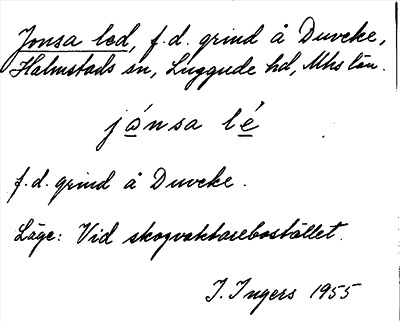 Jonsa led, f.d. grind å Duveke,
Halmstads sn, Luggude hd, Mhs län.
jánsa lé
f.d. grind å Duveke.
Läge: Vid skogvaktarebostället.
I. Ingers 1955